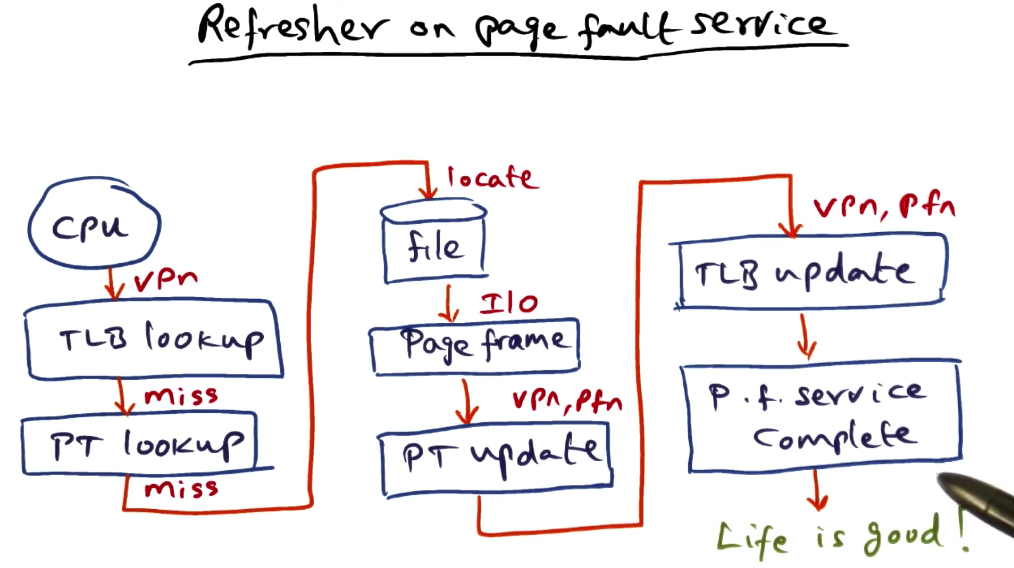 Refresher on page fault service
CPU
vpn
TLB lookup
miss
PT lookup
miss
locate
file
I/O
Page frame
vpn, pfn
PT update
vpn, pfn
TLB update
P.f. service
Complete
Life is good!